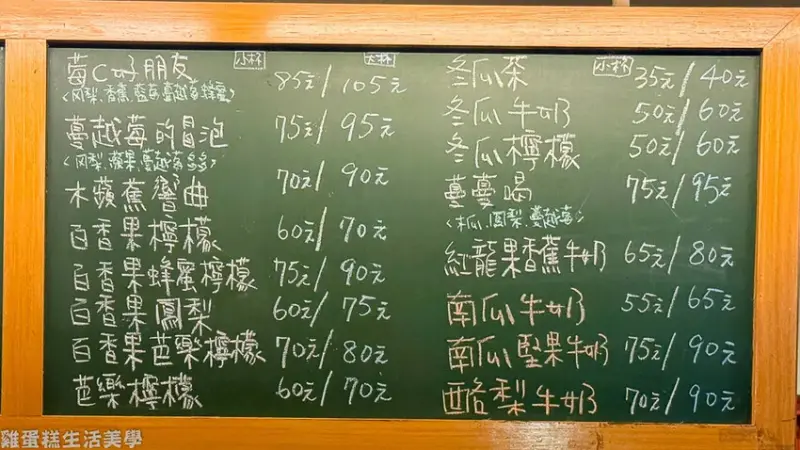 小杯 大杯
莓C好朋友 85元/105元
<凤梨、香蕉、蔓越莓、蜂蜜>
蔓越莓的冒泡 75元/95元
<凤梨、蘋果、蔓越莓、多多>
木蘋蕉響曲 70元/90元
百香果檸檬 60元/70元
百香果蜂蜜檸檬 75元/90元
百香果鳳梨 60元/75元
百香果芭樂檸檬 70元/80元
芭樂檸檬 60元/70元
小杯
冬瓜茶 35元/40元
冬瓜牛奶 50元/60元
冬瓜檸檬 50元/60元
蔓蔓喝 75元/95元
<木瓜、鳳梨、蔓越莓>
紅龍果香蕉牛奶 65元/80元
南瓜牛奶 55元/65元
南瓜堅果牛奶 75元/90元
酪梨牛奶 70元/90元
雞蛋糕生活美學